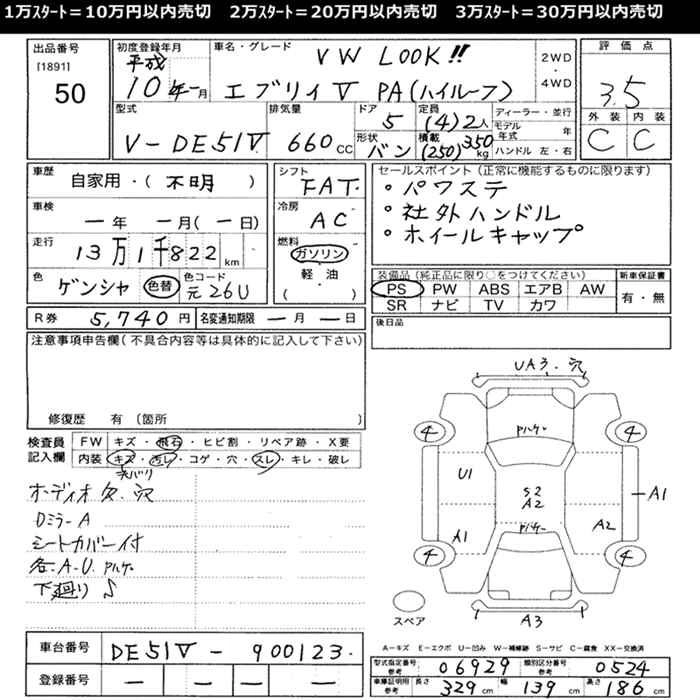 1万ｽﾀｰﾄ＝10万円以内売切　2万ｽﾀｰﾄ＝20万円以内売切　3万ｽﾀｰﾄ＝30万円以内売切
出品番号
[1891]
50
初度登録年月
平成
10年 一月
車名・グレード
VW LOOK!!
エブリィV PA(ハイルーフ)
2WD
・
4WD
評価点
3.5
外装 内装
C C
型式
V-DE51V
排気量
660 CC
ドア
5
形状
バン
定員
(4)2人
積載
(250)350kg
ディーラー・並行
モデル年式 年
ハンドル 左・右
車歴
自家用・(不明)
シフト
FAT
セールスポイント(正常に機能するものに限ります)
・パワステ
・社外ハンドル
・ホイールキャップ
車検
一年 一月(一日)
冷房
AC
走行
13万1千822km
燃料
ガソリン
軽・油
( )
色
ゲンシャ
色替
色コード
元26U
装備品(純正品に限り○をつけてください)
PS PW ABS エアB AW
SR ナビ TV カワ
新車保証書
有・無
R券 5,740円
名変通知期限 一月 一日
後日品
注意事項申告欄(不具合内容等は具体的に記入して下さい)
修復歴 有 (箇所 )
検査員記入欄
FW キズ・飛石・ヒビ割・リペア跡・X要
内装 キズ・汚レ・コゲ・穴・スレ・キレ・破レ
オーディオ欠.穴
Dミラー A
シートカバー付
各.A.U.ハゲ
下廻りS
UA3.穴
4 4
ハゲ
U1
S2
A2
A1
A1 A2
ハゲ
4 4
スペア
A3
A－キズ E－エクボ U－凹み W－補修跡 S－サビ C－腐食 XX－交換済
車台番号 DE51V-900123
登録番号 一 一 一 一
型式指定番号 参考 06929
類別区分番号 参考 0524
車庫証明用 参考 長さ 329cm 幅 139cm 高さ 186cm